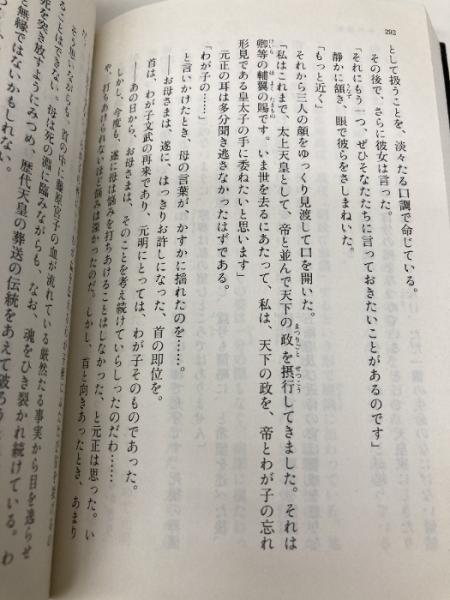 292
として扱うことを、淡々たる口調で命じている。
その後で、さらに彼女は言った。
「それにもう一つ、ぜひそなたたちに言っておきたいことがあるのです」
静かに頷き、眼で彼らをさしまねいた。
「もっと近く」
それから三人の顔をゆっくり見渡して口を開いた。
「私はこれまで、太上天皇として、帝と並んで天下の政を摂行してきました。それは
卿等の輔翼の賜です。いま世を去るにあたって、私は、天下の政を、帝とわが子の忘れ
形見である皇太子の手に委ねたいと思います」
元正の耳は多分聞き逃さなかったはずである。
「わが子の……」
と言いかけたとき、母の言葉が、かすかに揺れたのを……。
――お母さまは、遂に、はっきりお許しになった、首の即位を。
――あの日から、お母さまは、そのことを考え続けていらしったのだわ……
首は、わが子文武の再来であり、元明にとっては、わが子そのものであった。
しかし、今度も、遂に母は悩みを打ちあけることはしなかった、と元正は思った。い
や、打ちあけられないほどに悩みは深かったのだ。しかし、首と向きあったとき、あまり
首の中に藤原宮子の血が流れている厳然たる事実から目を逸らせ
ることはできない。母は死の淵に臨みながらも、なお、魂をひき裂かれ続けている。わ
死を突き放すようにみつめ、歴代天皇の葬送の伝統をあえて破ろう
と無縁ではないかもしれない。